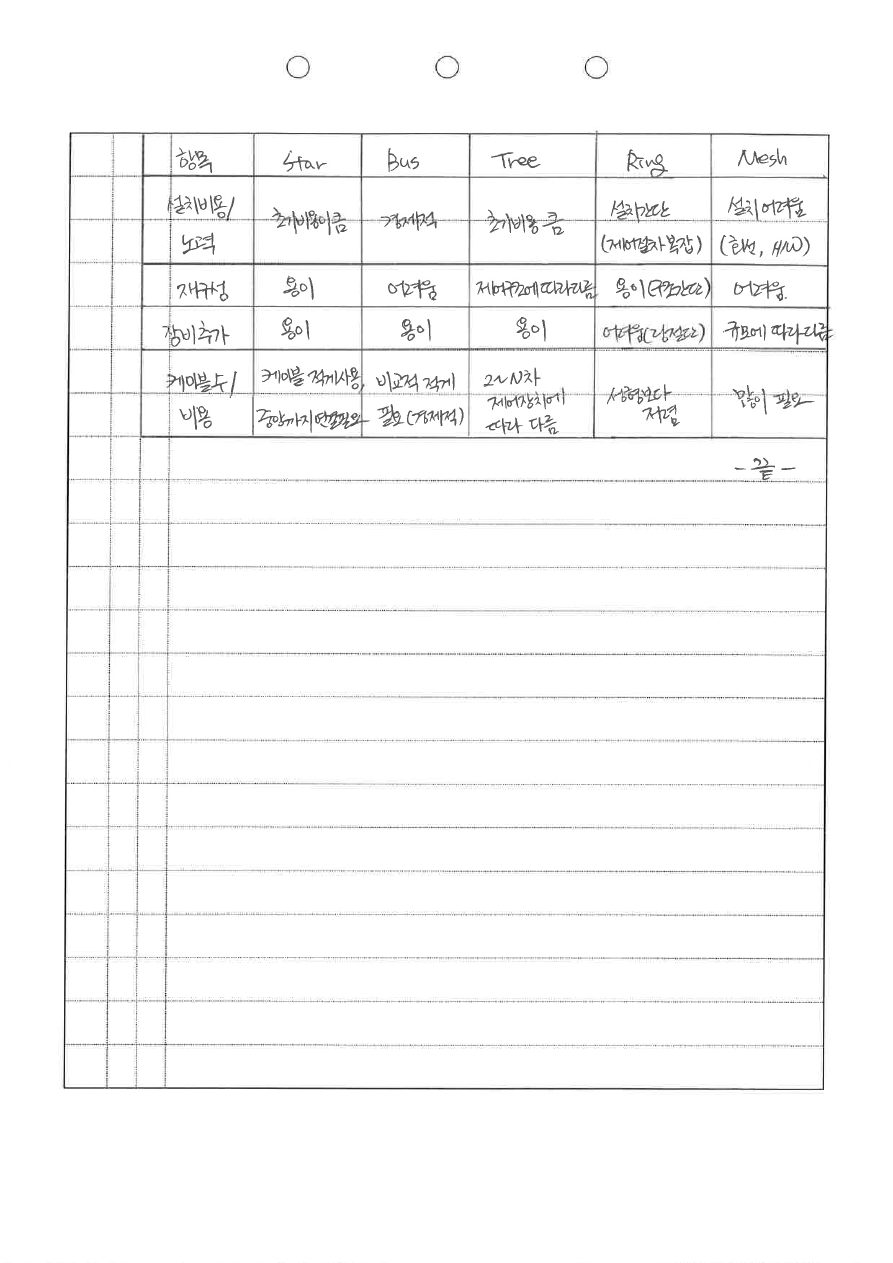 항목 Star Bus Tree Ring Mesh
설치비용/ 노력 초기비용이큼 경제적 초기비용 큼 설치간단 (제어절차복잡) 설치어려움 (회선, H/W)
재구성 용이 어려움 제어구조에따라다름 용이(구간간단) 어려움.
장비추가 용이 용이 용이 어려움(링절단) 규모에 따라다름
케이블수/ 비용 케이블 적게사용, 중앙까지연결필요 비교적 적게 필요(경제적) 2~N차 제어장치에 따라 다름 성형보다 저렴 많이 필요
- 끝 -